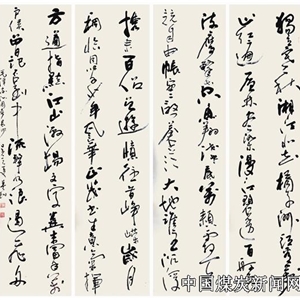 独立寒秋湘江北去橘子洲头看万
山红遍层林尽染漫江碧透百舸争
流鹰击长空鱼翔浅底万类霜天
竞自由怅寥廓问苍茫大地谁主沉浮
携来百侣曾游忆往昔峥嵘岁月
稠恰同学少年风华正茂书生意气挥斥
方遒指点江山激扬文字粪土当年万
户侯曾记否到中流击水浪遏飞舟
中国煤炭新闻网